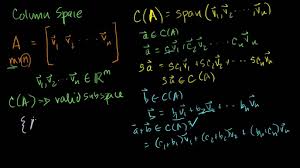 Column Space
A = [ v⃗₁ v⃗₂ ⋯ v⃗ₙ ]
m×n
v⃗₁, v⃗₂ ⋯ v⃗ₙ ∈ ℝᵐ
C(A) ⇒ valid subspace
{
C(A) = span(v⃗₁, v⃗₂ ⋯ v⃗ₙ)
a⃗ ∈ C(A)
a⃗ = c₁v⃗₁ + c₂v⃗₂ + ⋯ cₙv⃗ₙ
sa⃗ = sc₁v⃗₁ + sc₂v⃗₂ + ⋯ scₙv⃗ₙ
sa⃗ ∈ C(A)
b⃗ ∈ C(A)
b⃗ = b₁v⃗₁ + b₂v⃗₂ + ⋯ bₙv⃗ₙ
a⃗ + b⃗ ∈ C(A) ✓
= (c₁+b₁)v⃗₁ + (c₂+b₂)v⃗₂ + ⋯ (bₙ+cₙ)v⃗ₙ